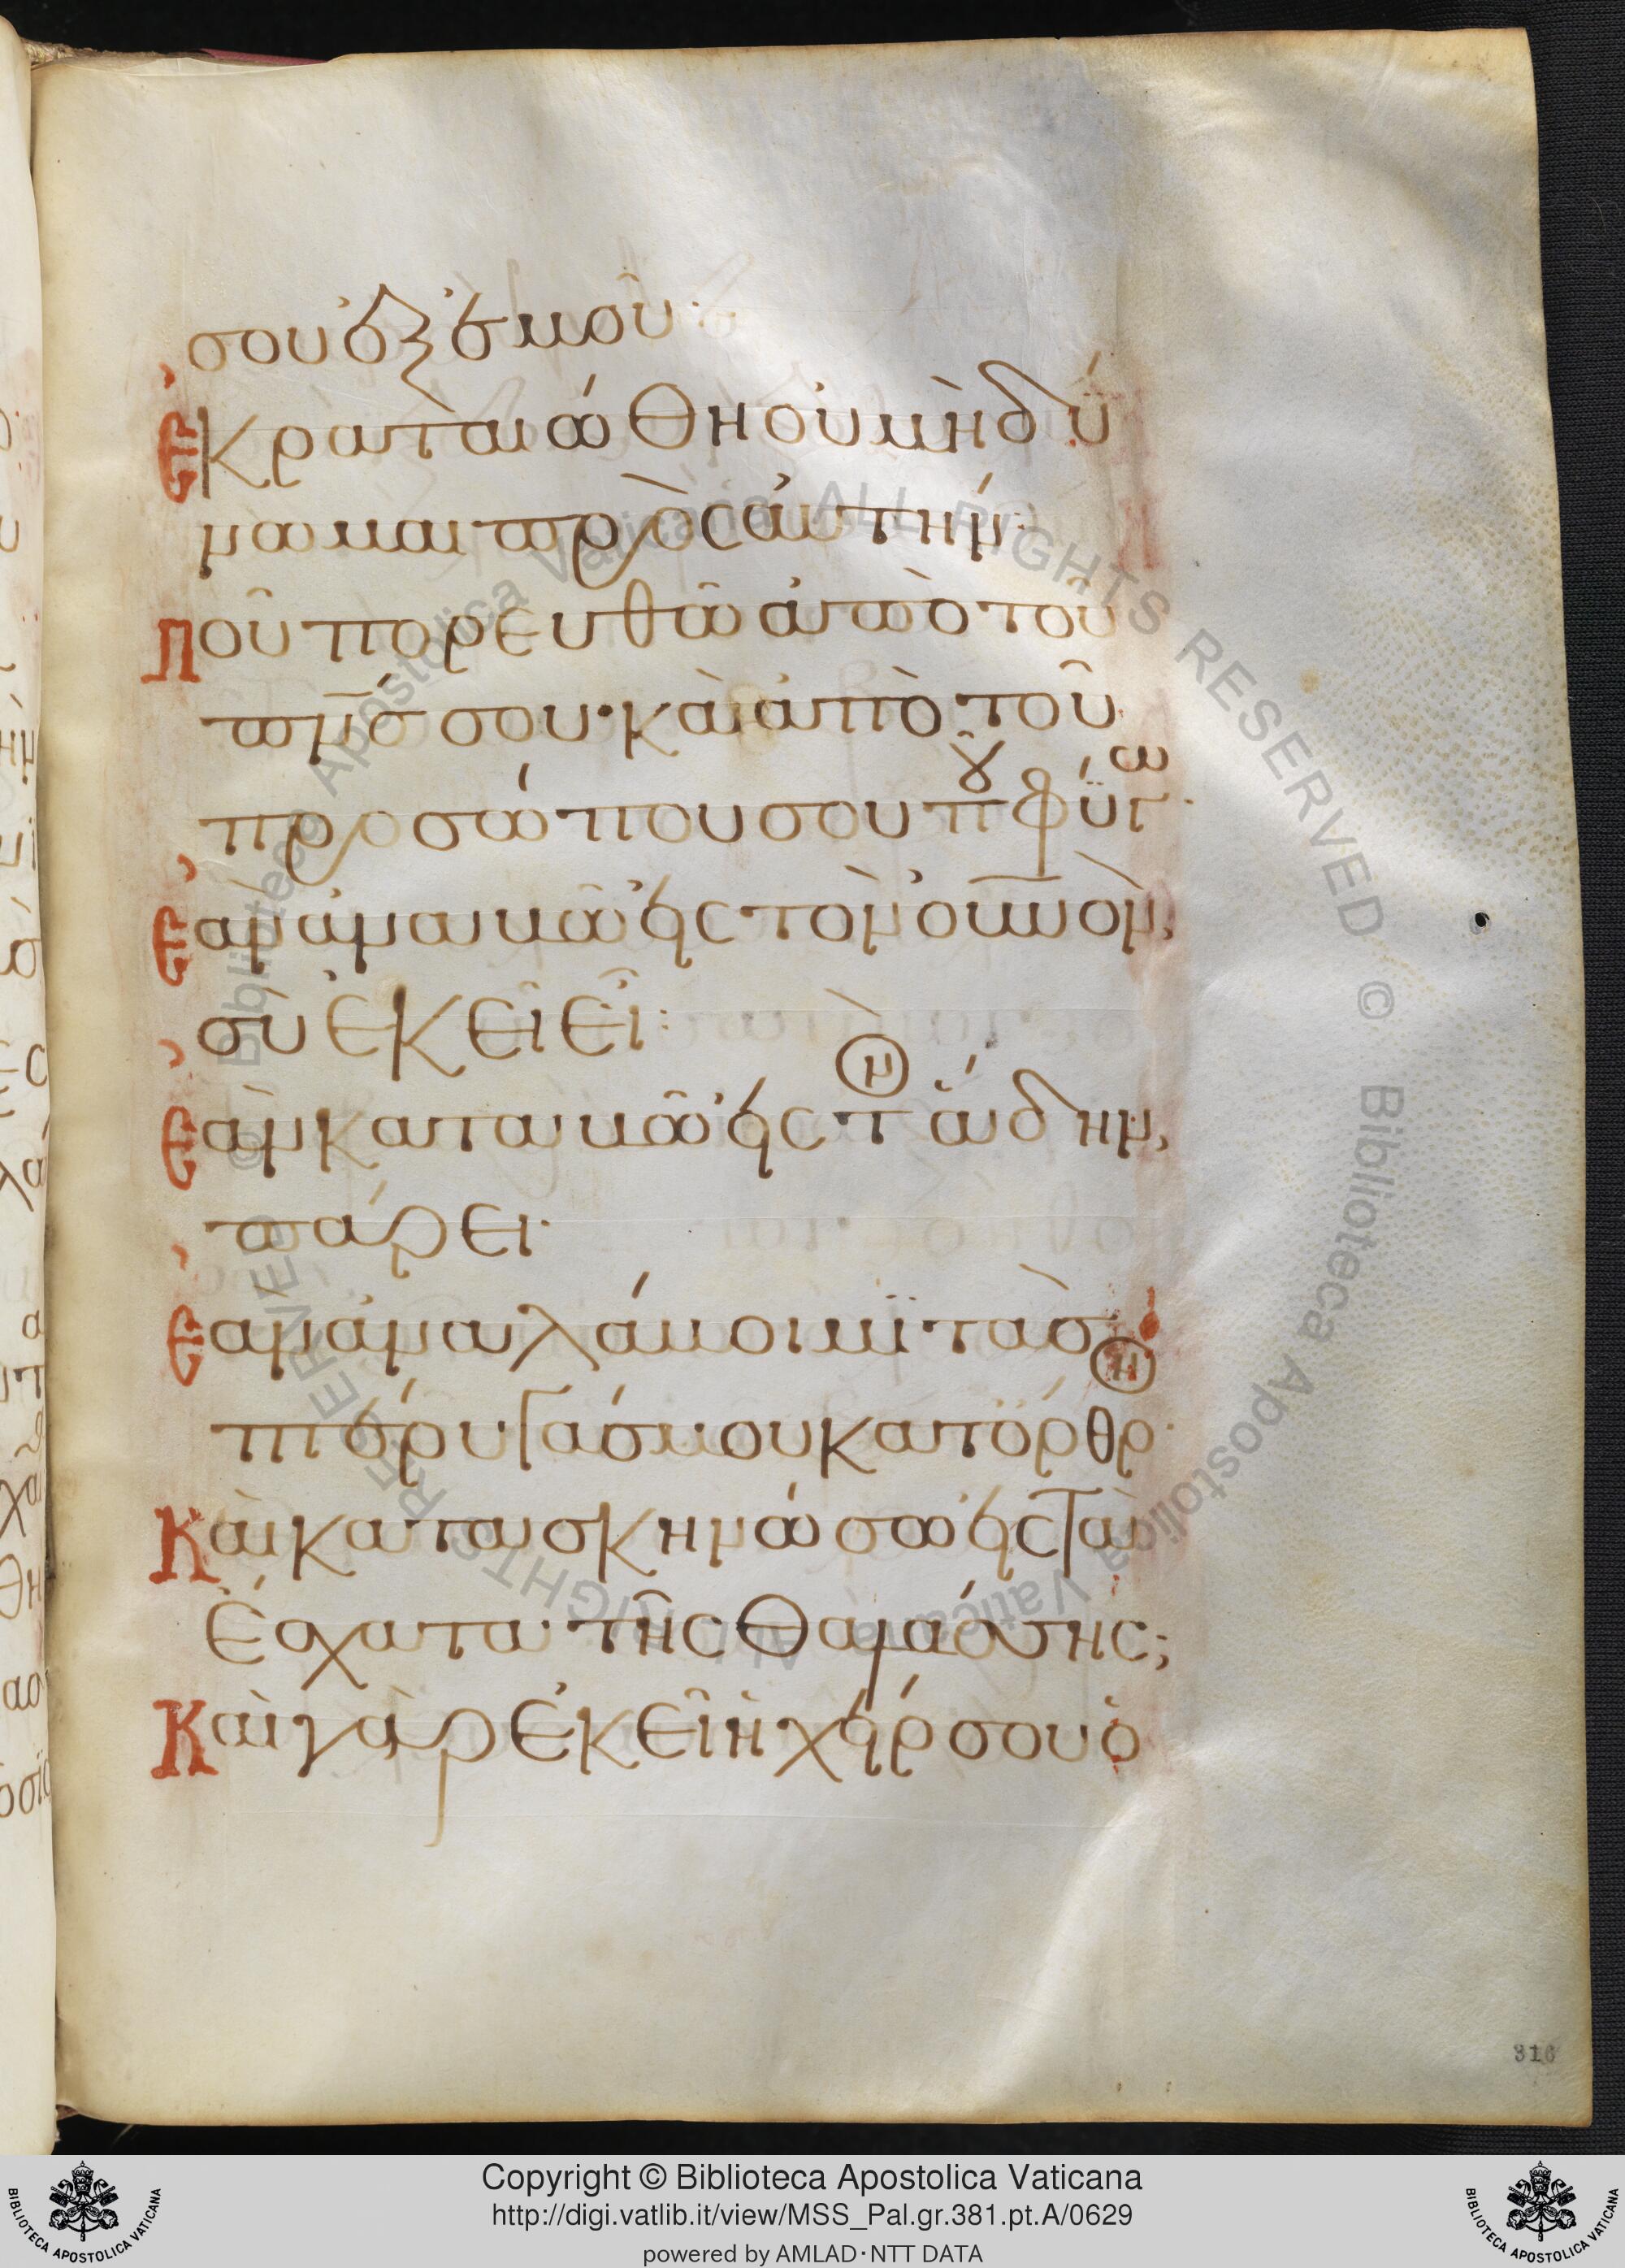 σου ἐξ ἐμοῦ·
ἐκραταιώθη οὐ μὴ δύ
νωμαι πρὸς αὐτήν·
ποῦ πορευθῶ ἀπὸ τοῦ
πν̅ς σου· καὶ ἀπὸ τοῦ
προσώπου σου πȣ̂ φύγω·
ἐὰν ἀναβῶ εἰς τὸν οὐνον,
σὺ ἐκεῖ εἶ:
ἐὰν καταβῶ εἰς τὸν ἅδην,
πάρει·
ἐὰν ἀναλάβοιμι τὰς
πτέρυγάς μου κατ' ὄρθρον·
καὶ κατασκηνώσω εἰς τὰ
ἔσχατα τῆς θαλάσσης;
καὶ γὰρ ἐκεῖ ἡ χείρ σου ὁ
316
Copyright © Biblioteca Apostolica Vaticana
http://digi.vatlib.it/view/MSS_Pal.gr.381.pt.A/0629
powered by AMLAD·NTT DATA
BIBLIOTECA APOSTOLICA VATICANA
BIBLIOTECA APOSTOLICA VATICANA
© Biblioteca Apostolica Vaticana ALL RIGHTS RESERVED © Biblioteca Apostolica Vaticana ALL RIGHTS RESERVED